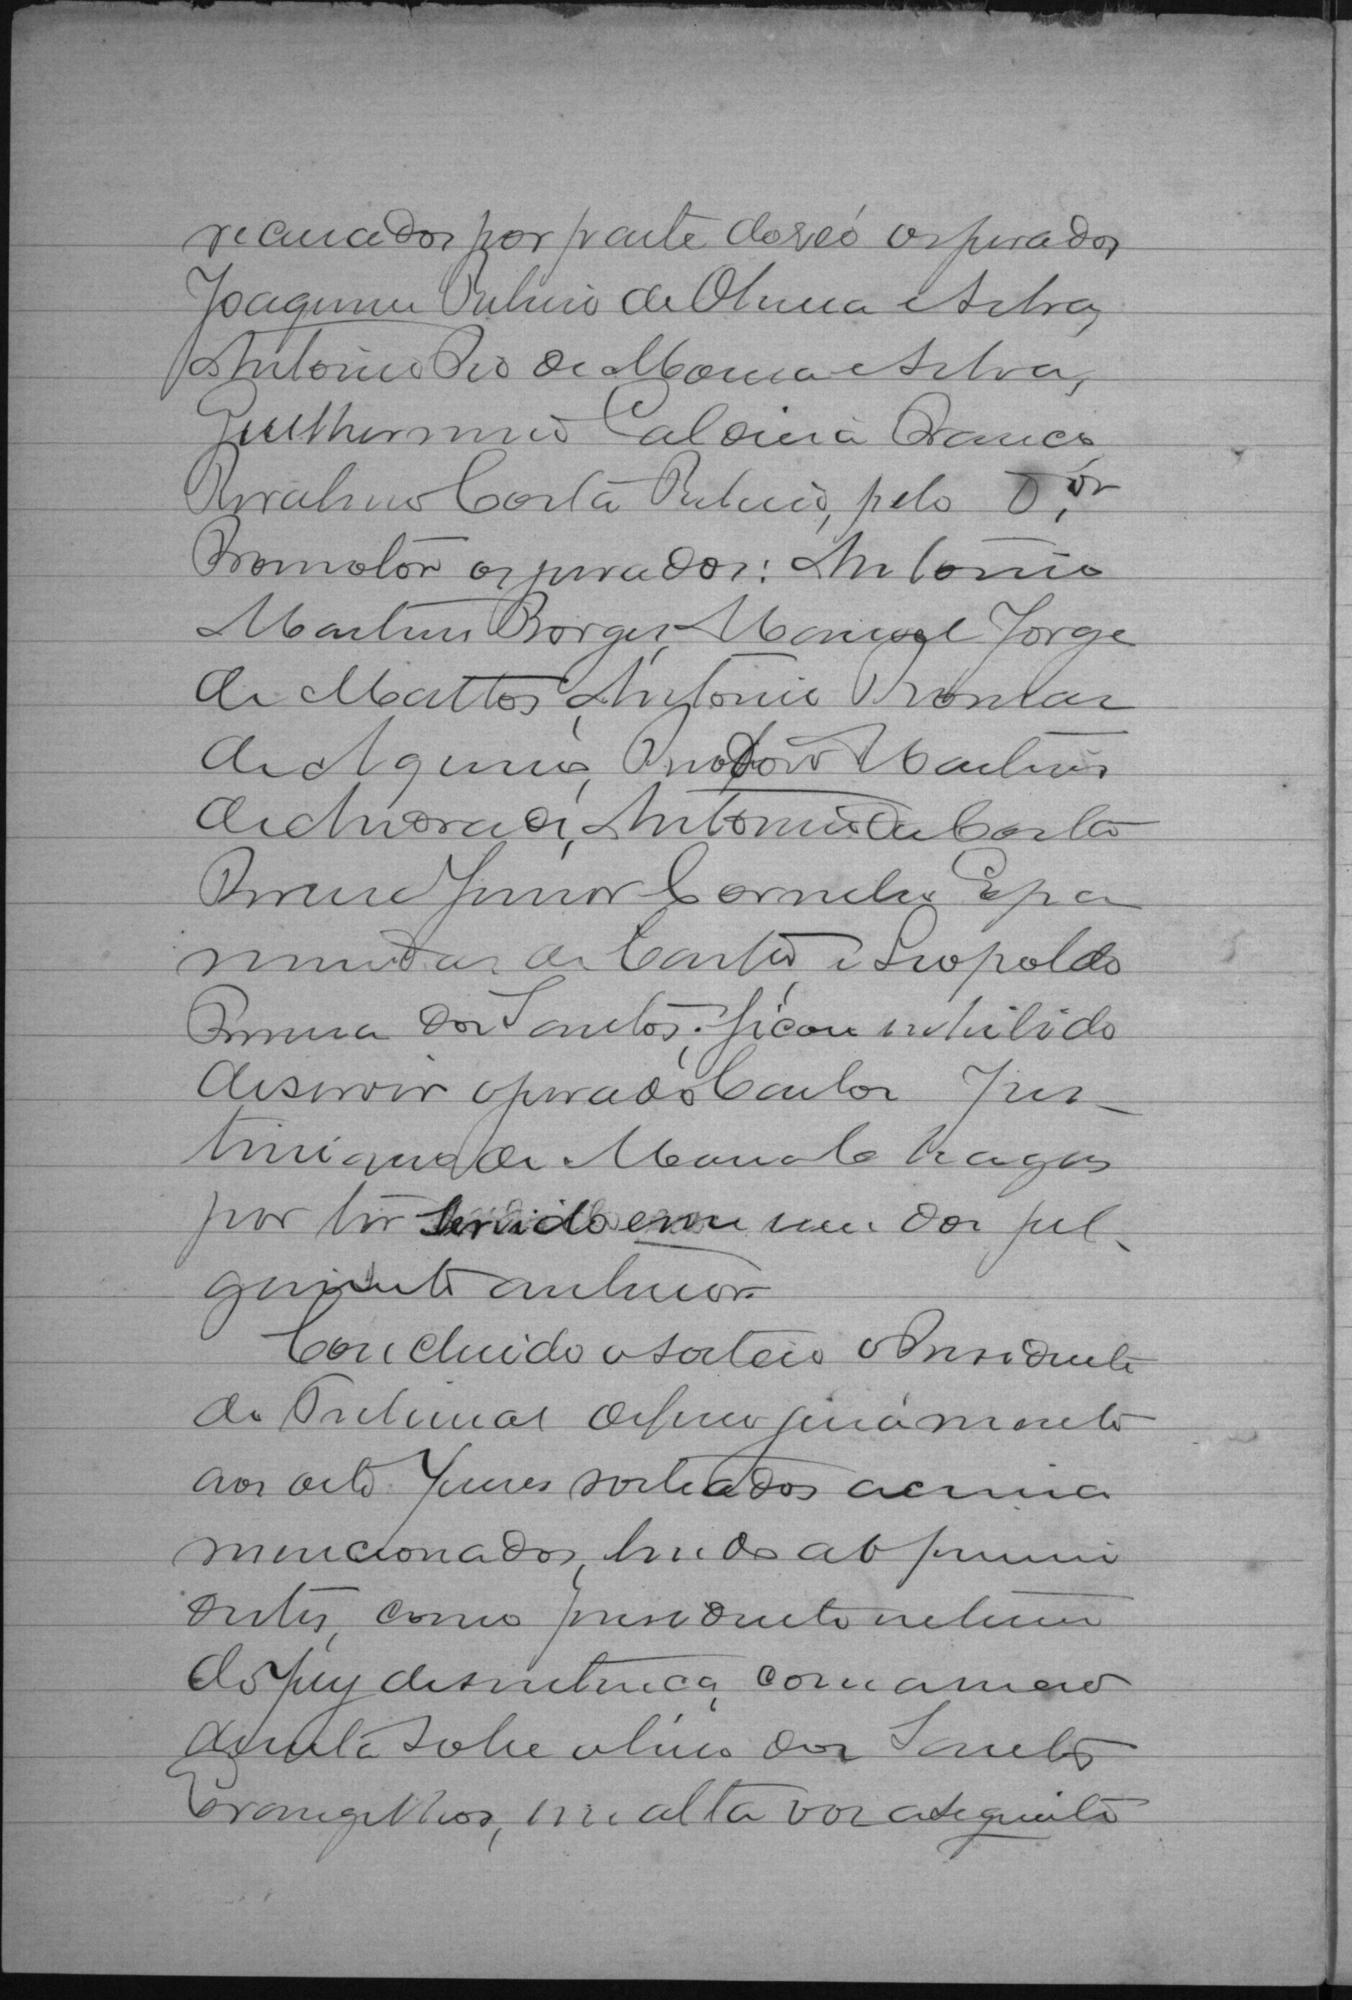 recusados por parte do réo os jurados
Joaquim Ribeiro de Oliveira e Silva,
Antonio Pio de Moura e Silva,
Guilhermino Caldeira Branco,
Costa Ribeiro, pelo Dr.
Promotôr os jurados: Antonio
Martins Borges, Manoel Jorge
de Mattos, Antonio
de Aquino, Martins
de Andrade, Antonio da Costa
Junior Cornelio Epa
minondas de Castro, e Leopoldo
dos Santos; ficou inhibido
de servir o jurado Carlos Jus-
tiniano de Chagas
por têr servido em um dos jul-
gamento anterior.
Concluido o sorteio o Presidente
do Tribunal deferio juramento
aos oito Juizes sorteados acima
mencionados, lendo ao primei
, como presidente interino
do jury de sentença, com a mão
direita sobre o livro dos Santos
Evangelhos, em alta voz a seguinte